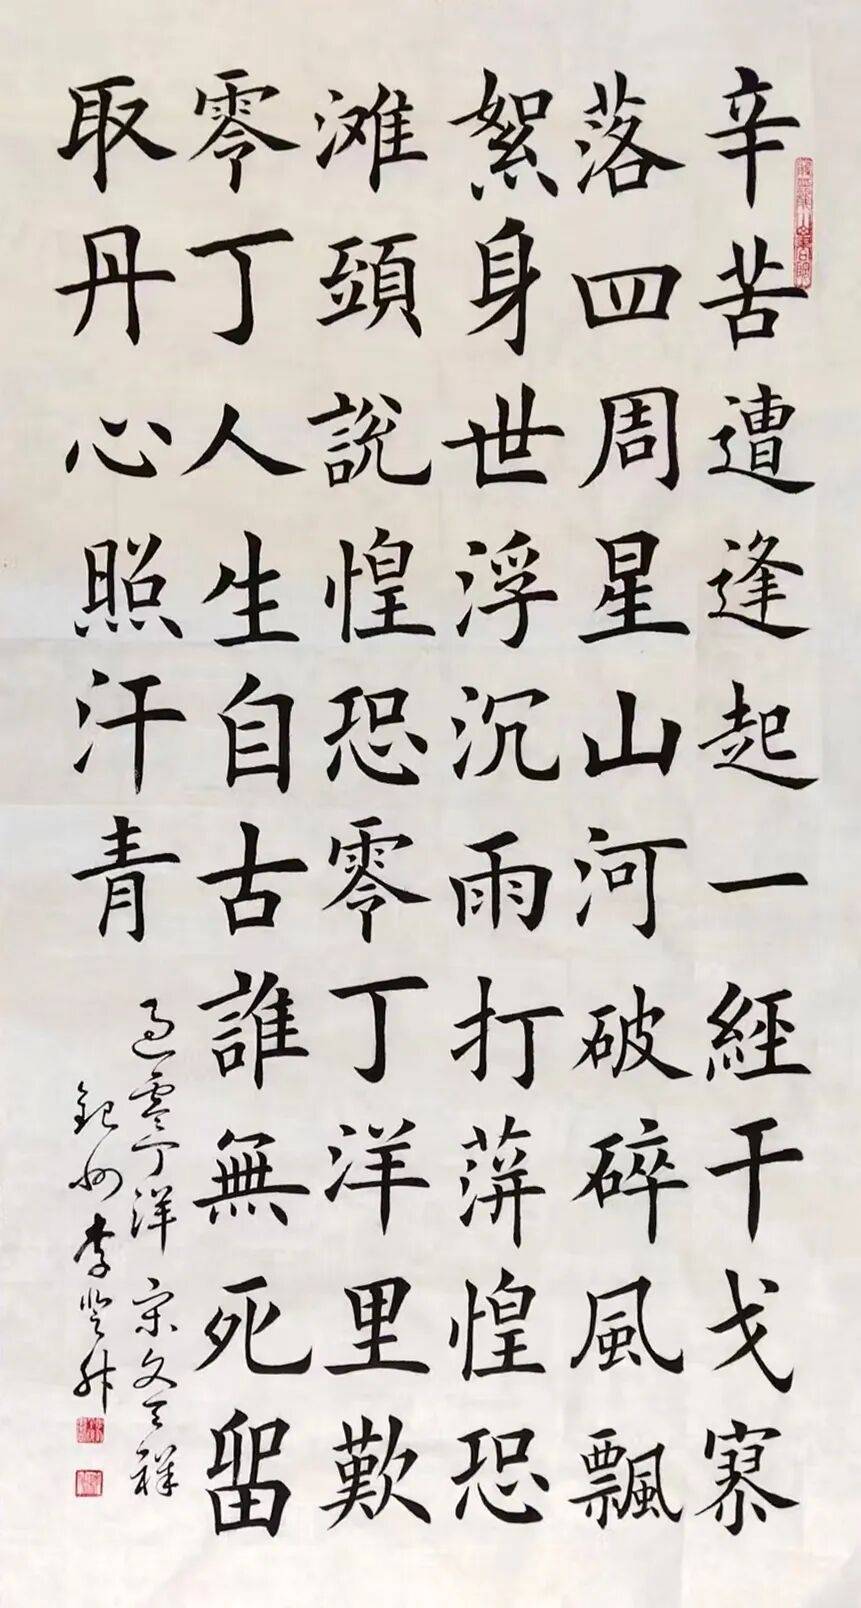 辛苦遭逢起一經干戈寥
落四周星山河破碎風飄
絮身世浮沉雨打蓱惶恐
滩頭說惶恐零丁洋里歎
零丁人生自古誰無死留
取丹心照汗青
過零丁洋 宋文天祥
州李登